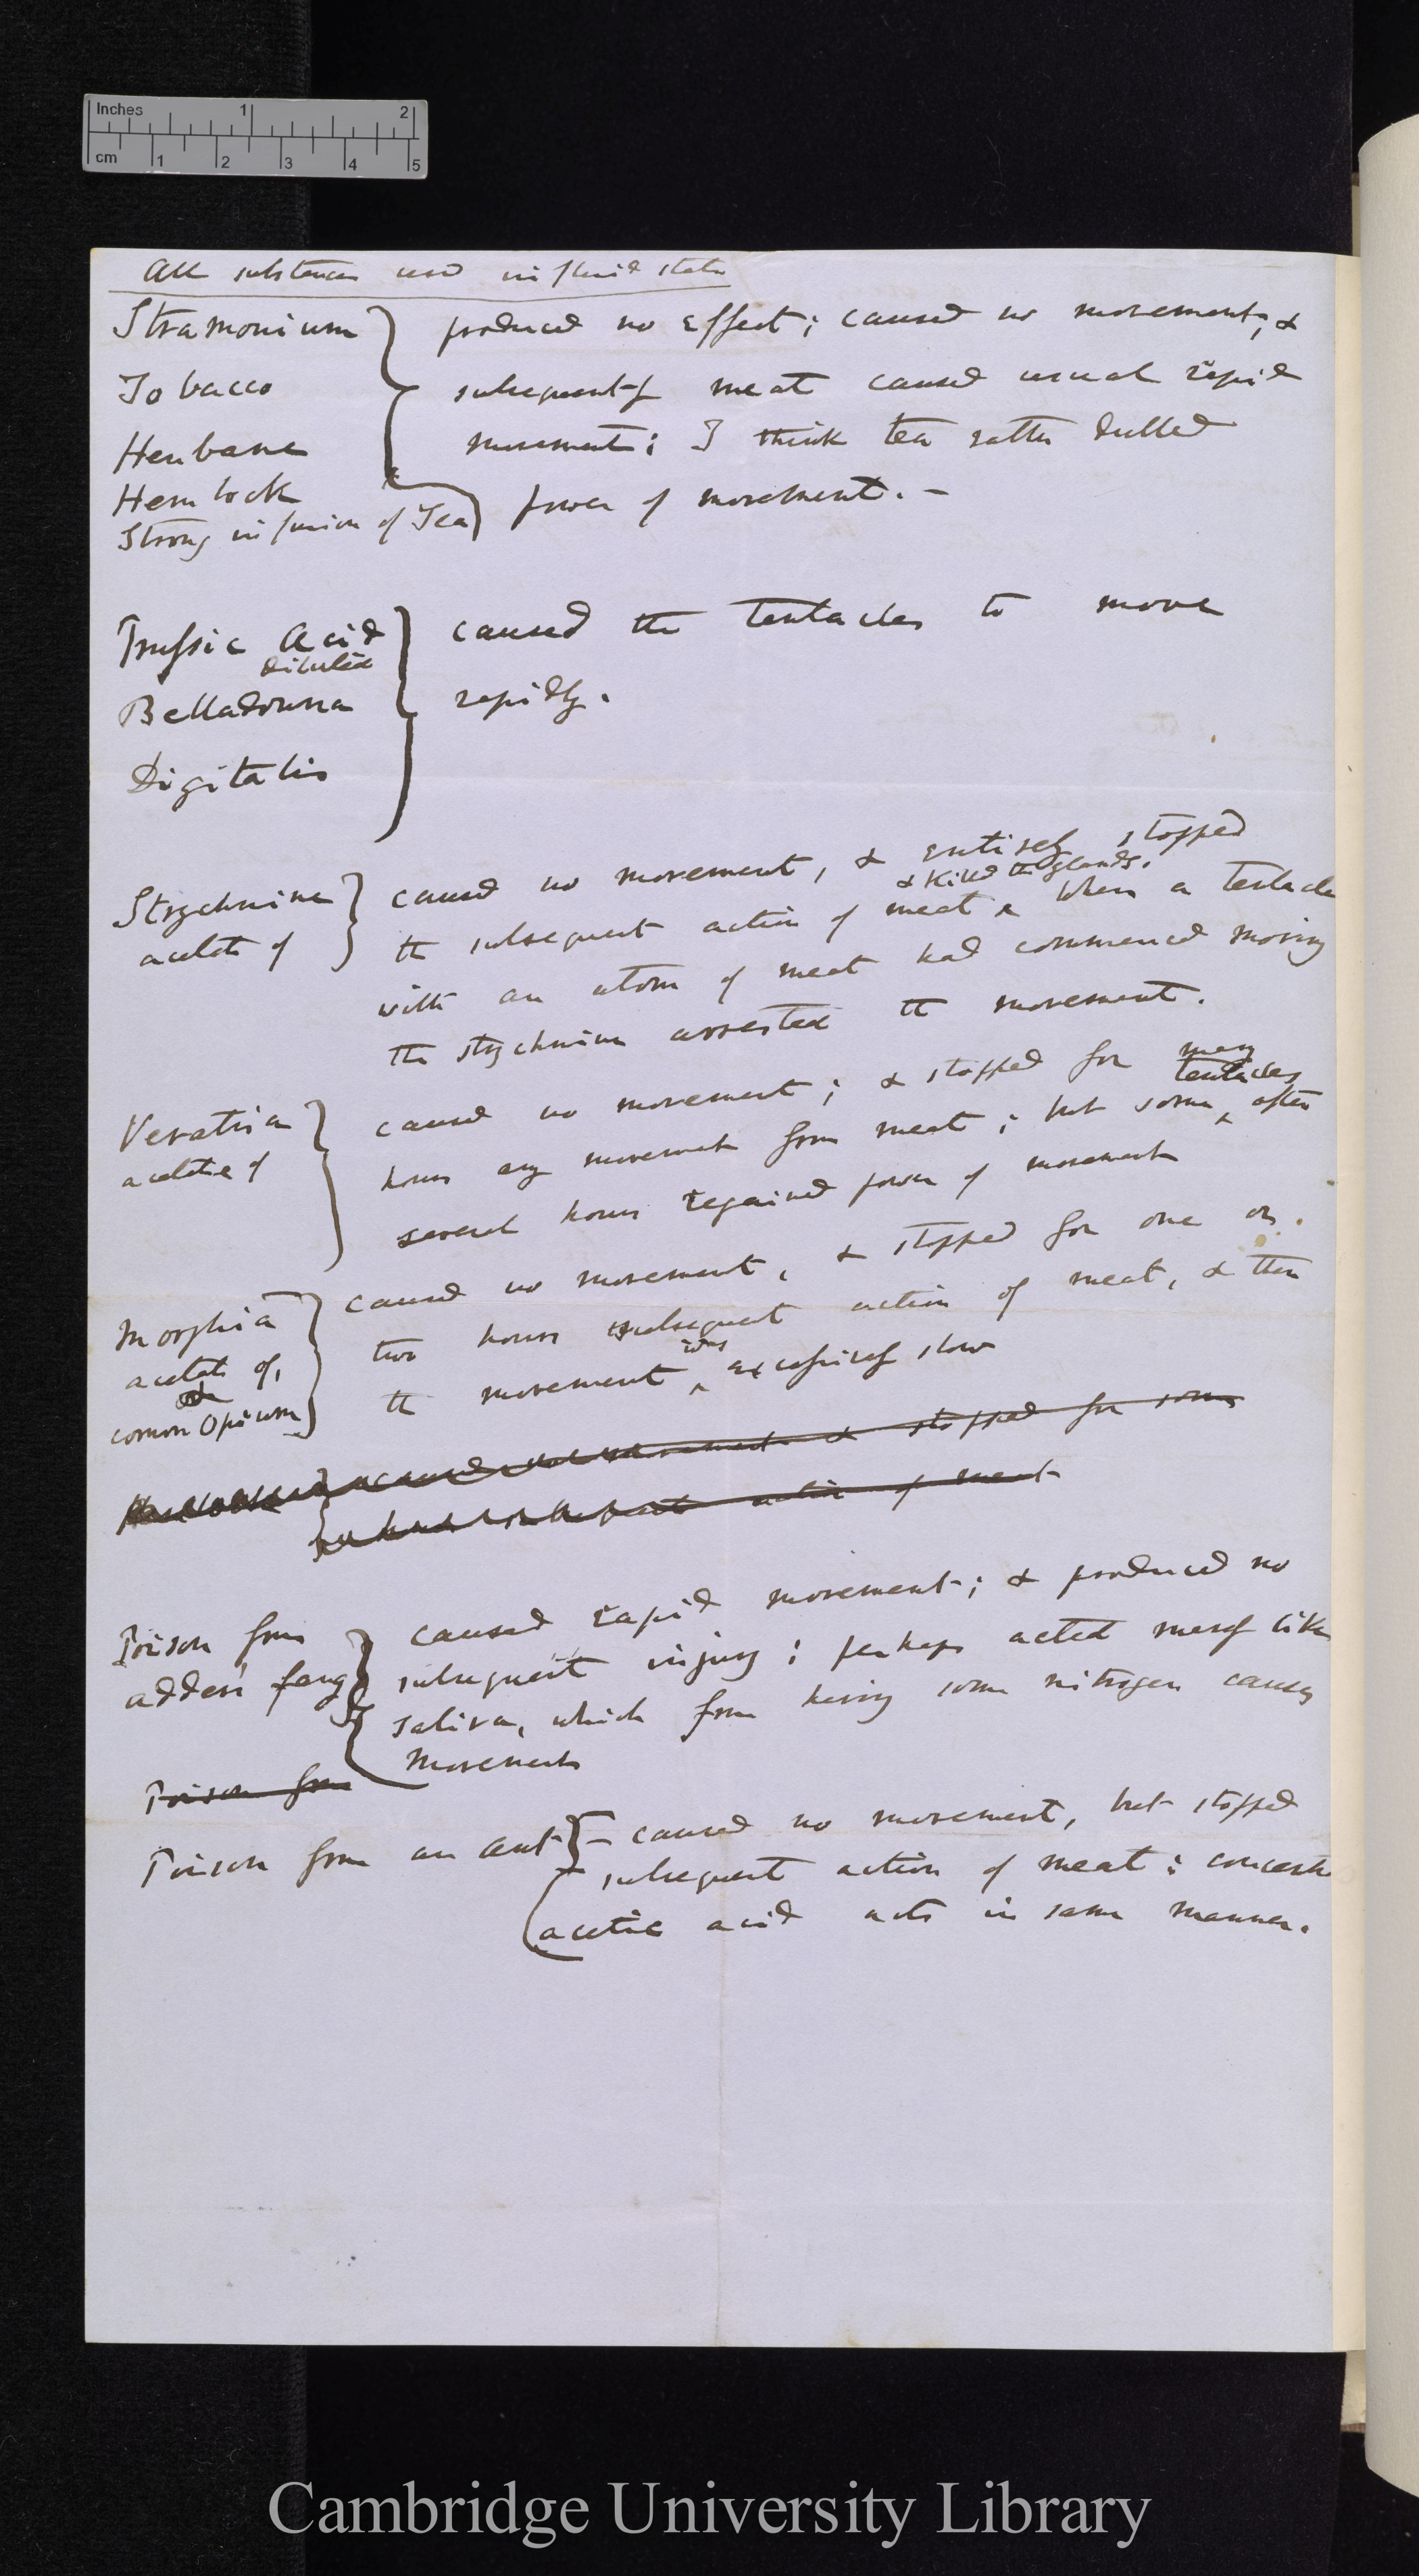 Inches 1 2
cm 1 2 3 4 5
All substances used in fluid state
Stramonium produced no effect; caused no movement; &
Tobacco subsequently meat caused usual rapid
Henbane movement; I think tea rather dulled
Hemlock
Strong infusion of Tea power of movement. —
Prussic Acid caused the tentacles to move
Diluted
Belladonna rapidly.
Digitalis
Strychnine caused no movement, & entirely stopped
& killed the glands.
acetate of the subsequent action of meat ^ When a tentacle
with an atom of meat had commenced moving
the strychnine arrested the movement.
many
Veratria caused no movement; & stopped for
tentacles
acetate of hours any movement from meat; but some ^ after
several hours regained power of movement
Morphia caused no movement, & stopped for one or
acetate of, two hours subsequent action of meat, & then
&
was
comon Opium the movement ^ excessively slow
caused no movement & stopped for some
action of meat
Poison from caused rapid movement; & produced no
adder's fang subsequent injury; perhaps acted merely like
saliva, which from having some nitrogen causes
movement
Poison from
Poison from an ant — caused no movement, but stopped
subsequent action of meat;
acetic acid acts in same manner.
Cambridge University Library